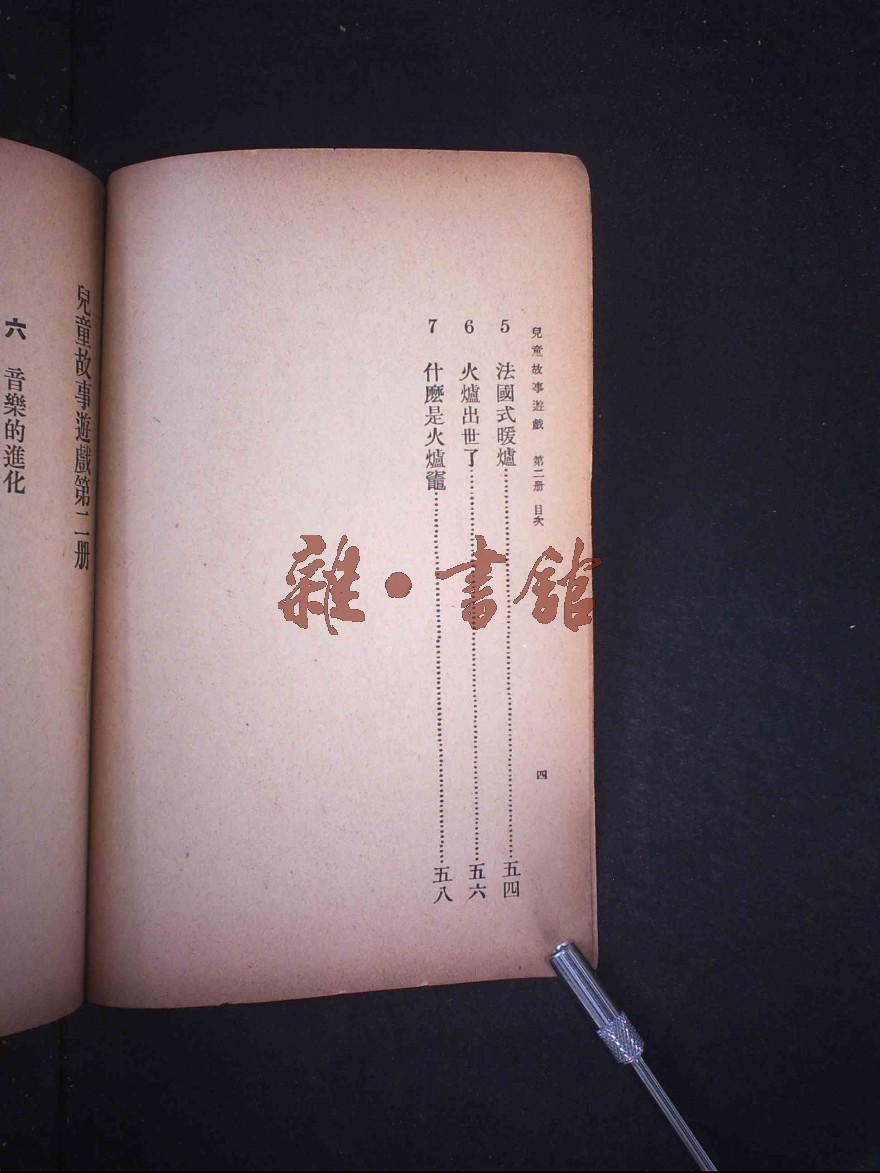 兒童故事遊戲 第二册 目次
四
5 法國式暖爐……五四
6 火爐出世了……五六
7 什麼是火爐竈……五八
兒童故事遊戲第二册
六 音樂的進化
雜·書館